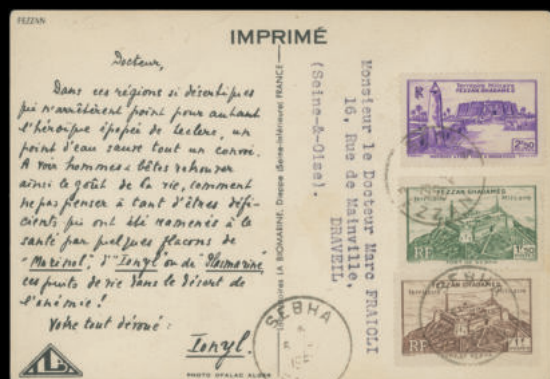 FEZZAN
IMPRIMÉ
Docteur,
Dans ces régions si désertiques
qui n'arrêtèrent point pour autant
l'héroïque épopée de Leclerc, un
point d'eau sauve tout un convoi.
A voir hommes & bêtes retrouver
ainsi le goût de la vie, comment
ne pas penser à tant d'êtres défi-
cients, qui ont été ramenés à la
santé par quelques flacons de
"Marinol", d'"Ionyl" ou de "Plasmarine"
ces puits de vie dans le désert de
l'anémie !
Votre tout dévoué :
Ionyl.
PHOTO OFALAC ALGER
LA BIOMARINE, Dieppe (Seine-Inférieure) FRANCE
Monsieur le Docteur Marc FRAIOLI
16, Rue de Mainville,
DRAVEIL
(Seine-&-Oise).
Territoire Militaire
FEZZAN-GHADAMÈS
2F50
FEZZAN-GHADAMÈS
Territoire Militaire
RF
1F50
FORT DE SEBHA
FEZZAN-GHADAMÈS
Territoire Militaire
RF
1F
FORT DE SEBHA
SEBHA
FEZZAN
SEBHA